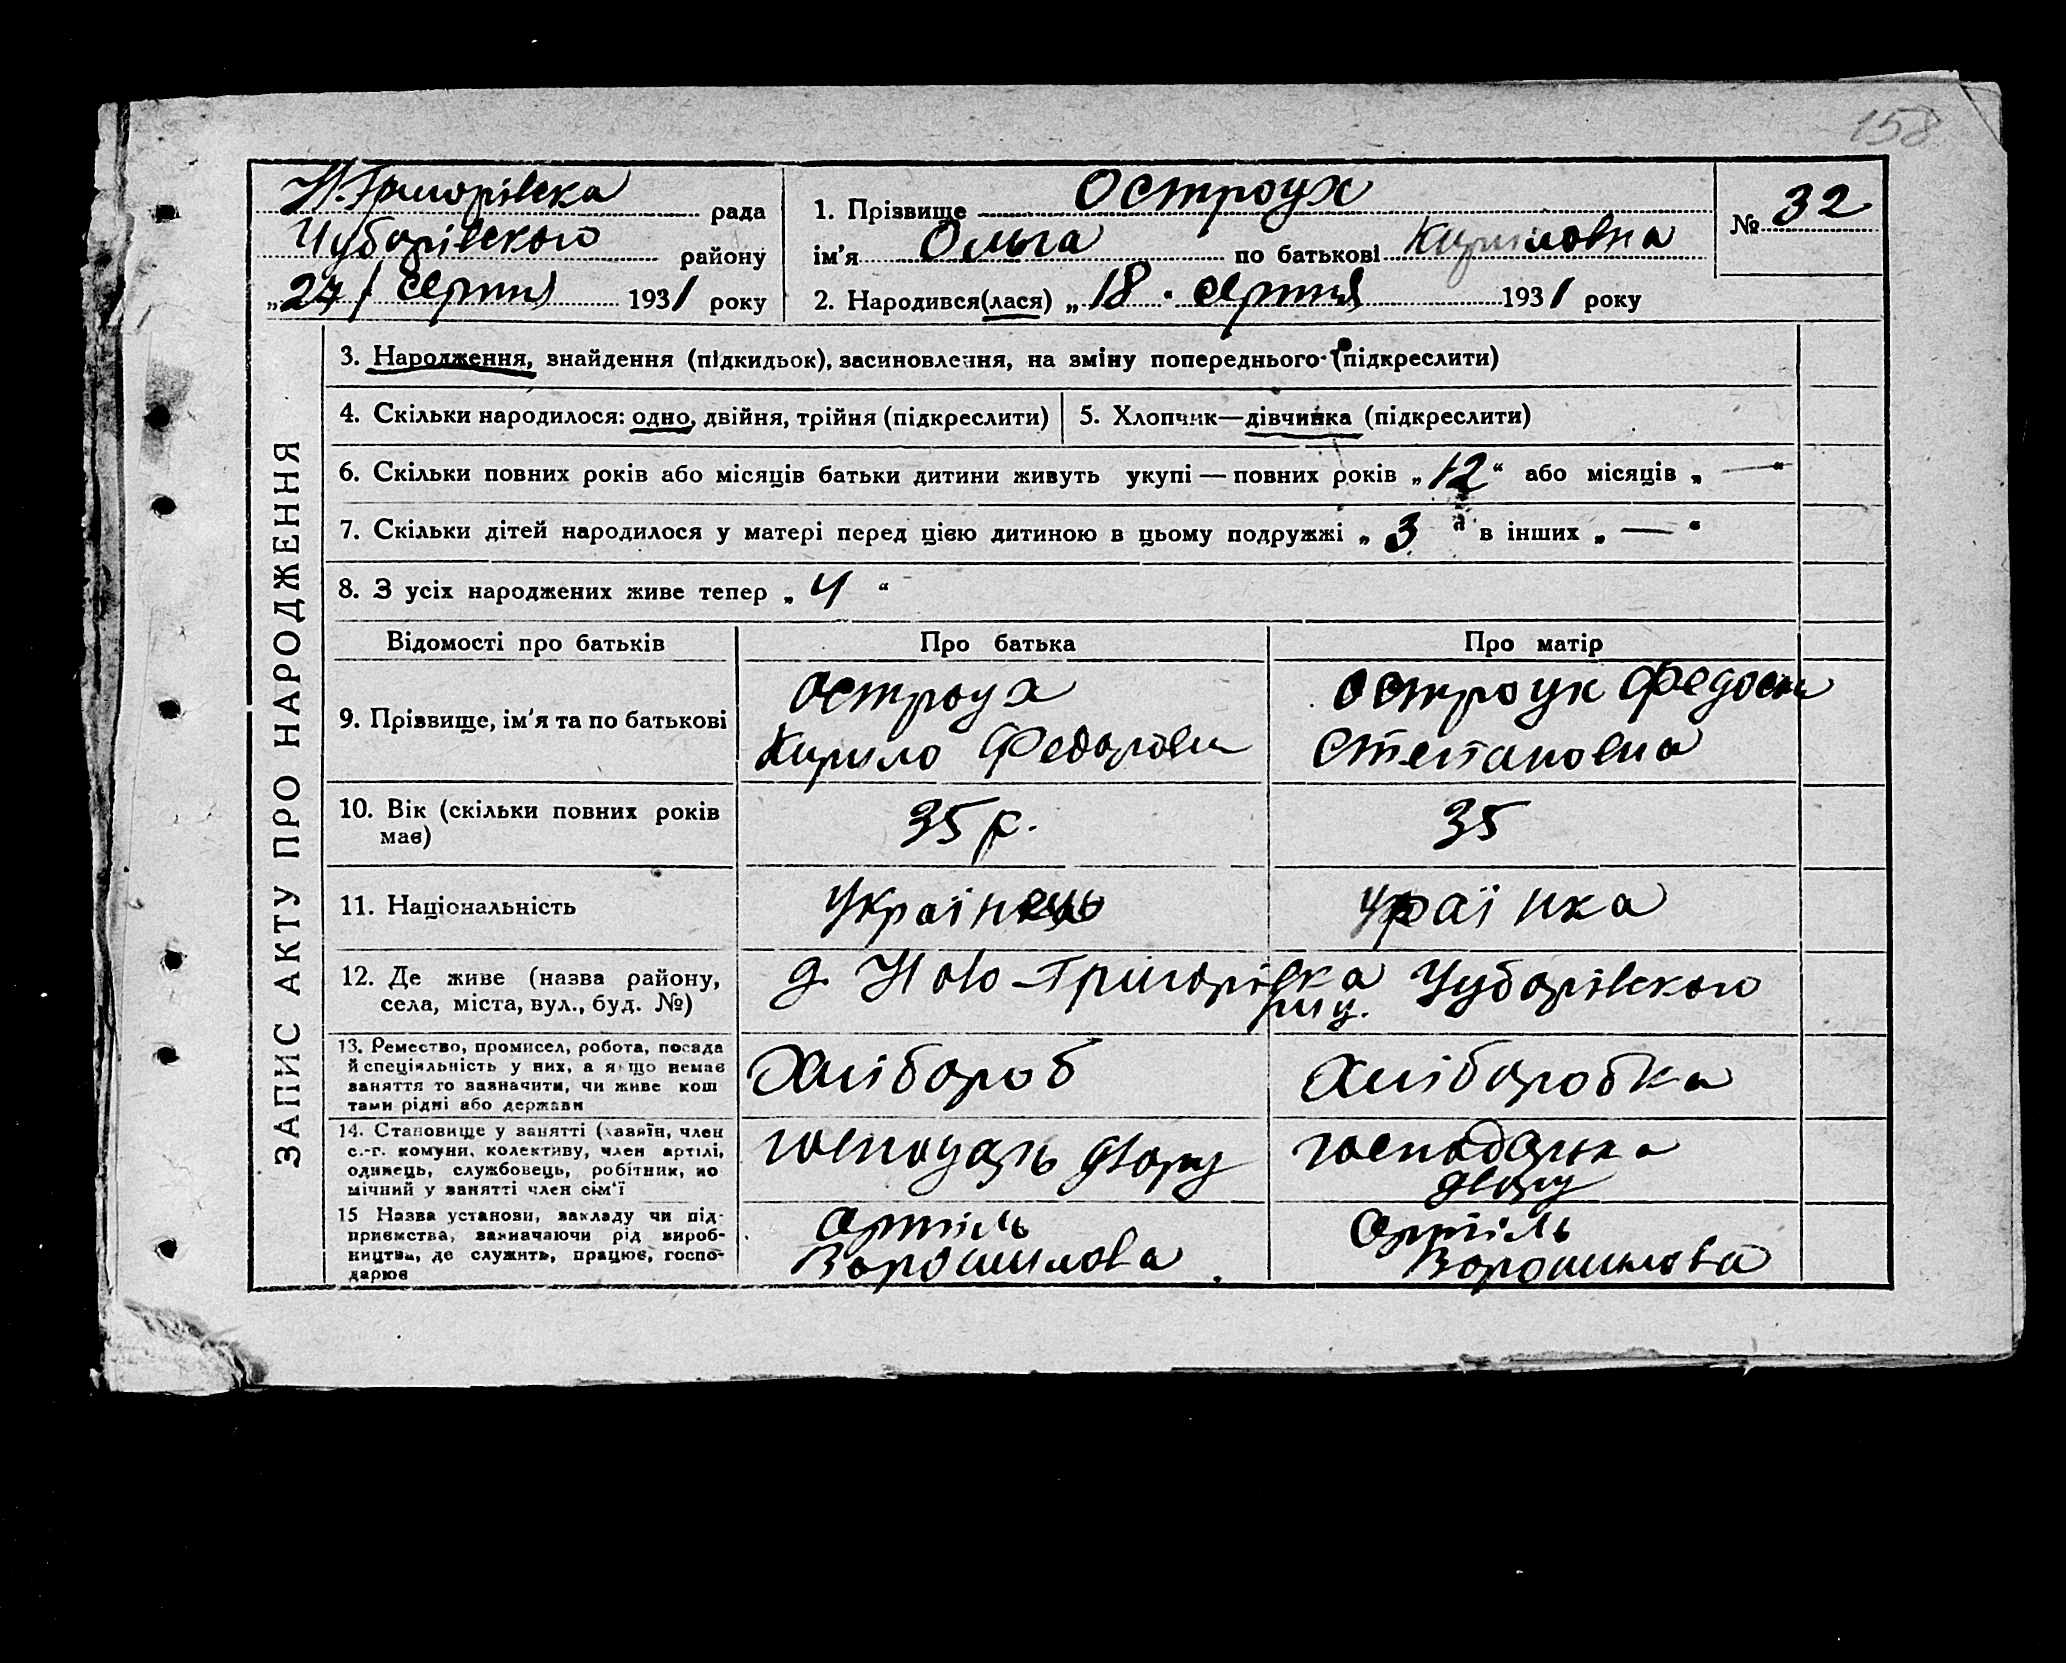 158
Н. Григорівска рада
Чубарівского району
„27/ серпня 1931 року
1. Прізвище Остроух
ім’я Ольга по батькові Кириловна
№ 32
2. Народився(лася) „18 серпня 1931 року
ЗАПИС АКТУ ПРО НАРОДЖЕННЯ
3. Народження, знайдення (підкидьок), засиновлення, на зміну попереднього (підкреслити)
4. Скільки народилося: одно, двійня, трійня (підкреслити)
5. Хлопчик—дівчинка (підкреслити)
6. Скільки повних років або місяців батьки дитини живуть укупі — повних років „12“ або місяців „—“
7. Скільки дітей народилося у матері перед цією дитиною в цьому подружжі „3“ в інших „—“
8. З усіх народжених живе тепер „4“
Відомості про батьків
Про батька
Про матір
9. Прізвище, ім’я та по батькові
Остроух
Кирило Федорови
Остроух Федоси
Степановна
10. Вік (скільки повних років
має)
35 р.
35
11. Національність
Українець
Країнка
12. Де живе (назва району,
села, міста, вул., буд. №)
Ново-Григорівка Чубарівского
13. Ремество, промисел, робота, посада
й спеціяльність у них, а якщо немає
заняття то зазначити, чи живе кош
тами рідні або держави
Хлібороб
Хліборобка
14. Становище у занятті (хазяїн, член
с.-г. комуни, колективу, член артілі,
одинець, службовець, робітник, по
мічний у занятті член сім’ї
господарь двору
господарька
двору
15 Назва установи, закладу чи під-
приємства, зазначаючи рід вироб-
ництва, де служить, працює, госпо-
дарює
Артіль
Ворошилова
Артіль
Ворошилова